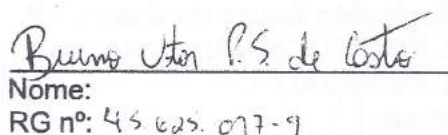 Bruno Vitor P. S. de Costa
Nome:
RG nº: 45.625.077-9